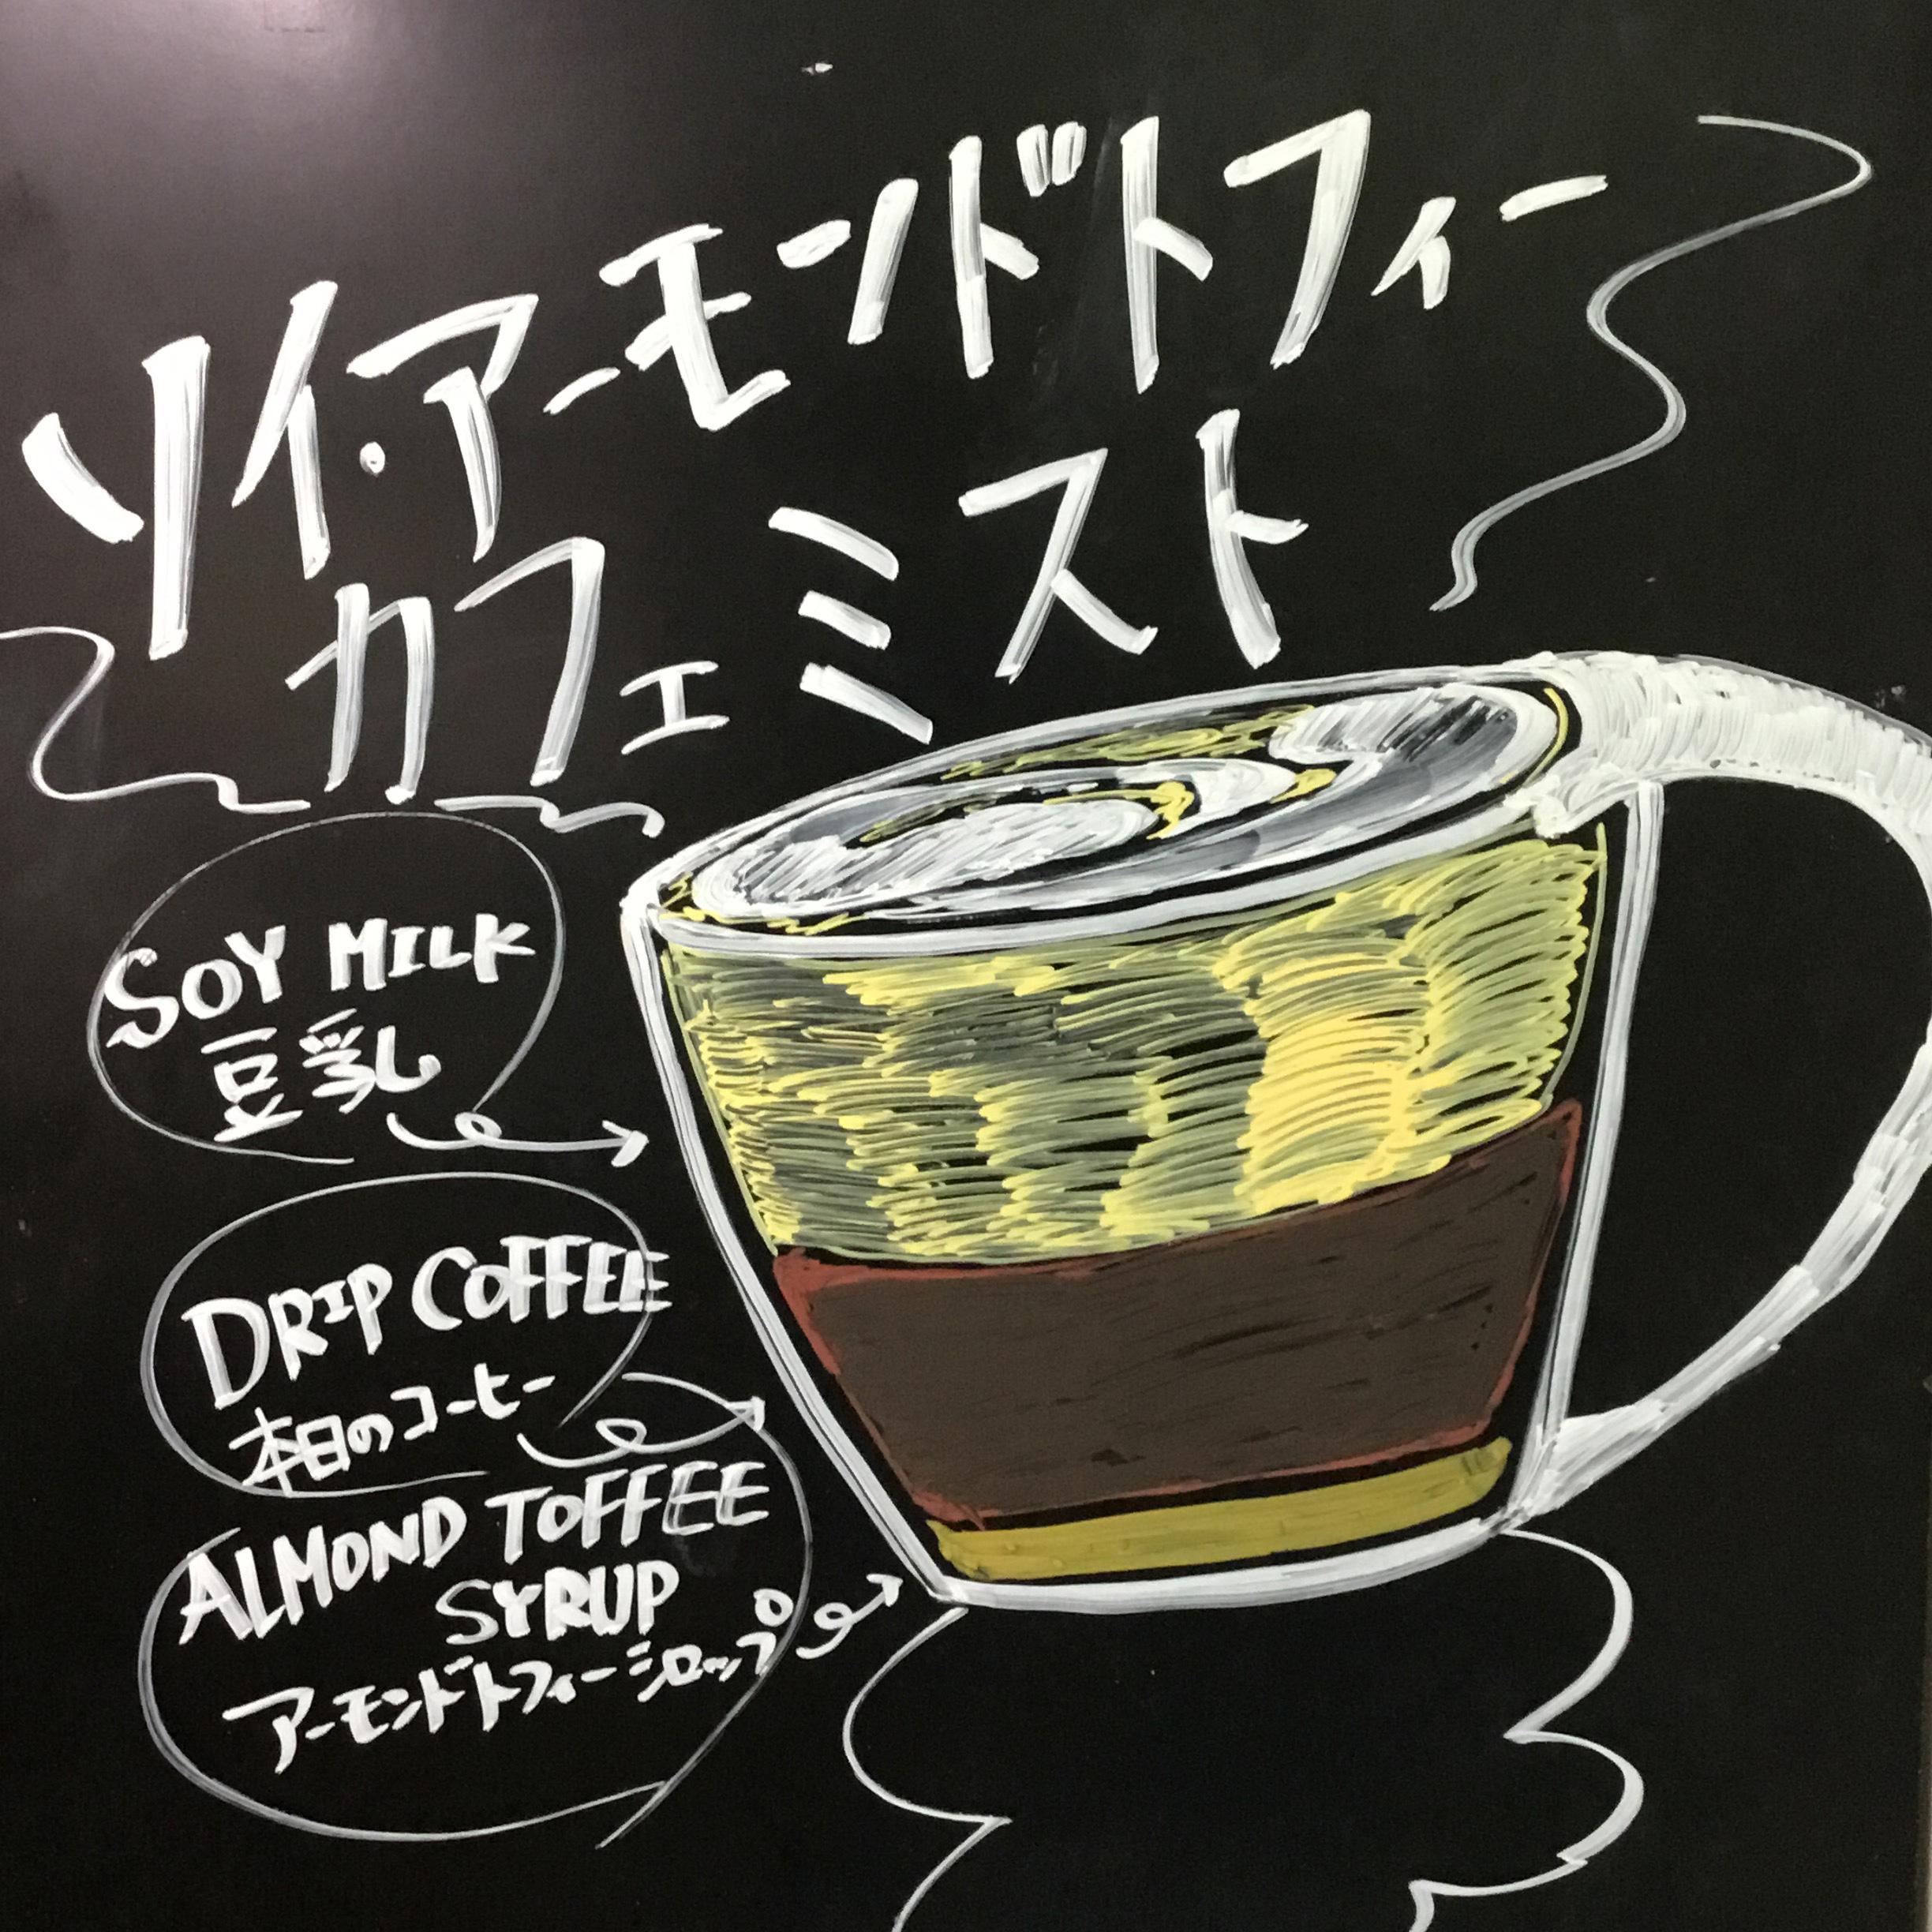 ソイ・アーモンドトフィー
カフェミスト
SOY MILK
豆乳
DRIP COFFEE
本日のコーヒー
ALMOND TOFFEE
SYRUP
アーモンドトフィーシロップ